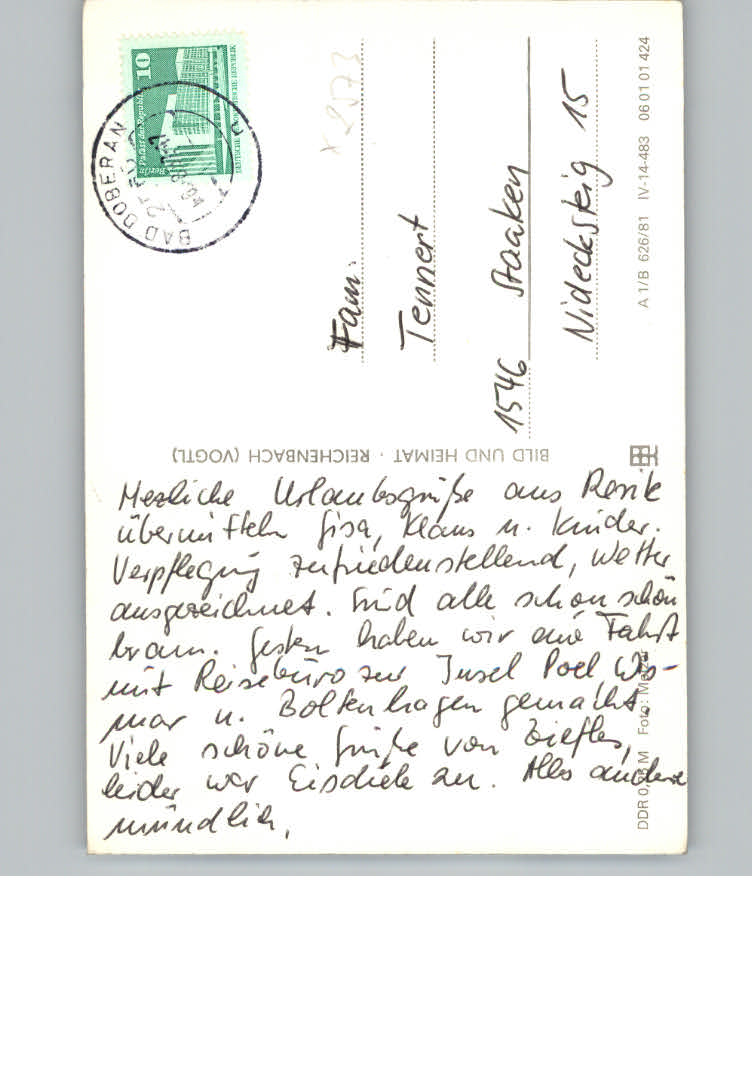 Herzliche Urlaubsgrüße aus Rerik
übermitteln Gisa, Klaus u. Kinder.
Verpflegung zufriedenstellend, Wetter
ausgezeichnet. Sind alle schon schön
braun. Gestern haben wir eine Fahrt
mit Reisebüro zur Insel Poel Wis-
mar u. Boltenhagen gemacht.
Viele schöne Grüße von
leider war Eisdiele zu. Alles andere
mündlich.
Fam.
Tennert
1546 Staaken
Nidecksteig 15
10
Palast der Republik
Berlin
DEUTSCHE DEMOKRATISCHE REPUBLIK
BAD DOBERAN
BILD UND HEIMAT · REICHENBACH (VOGTL)
A 1/B 626/81 IV-14-483 06 01 01 424
DDR 0, M Foto: